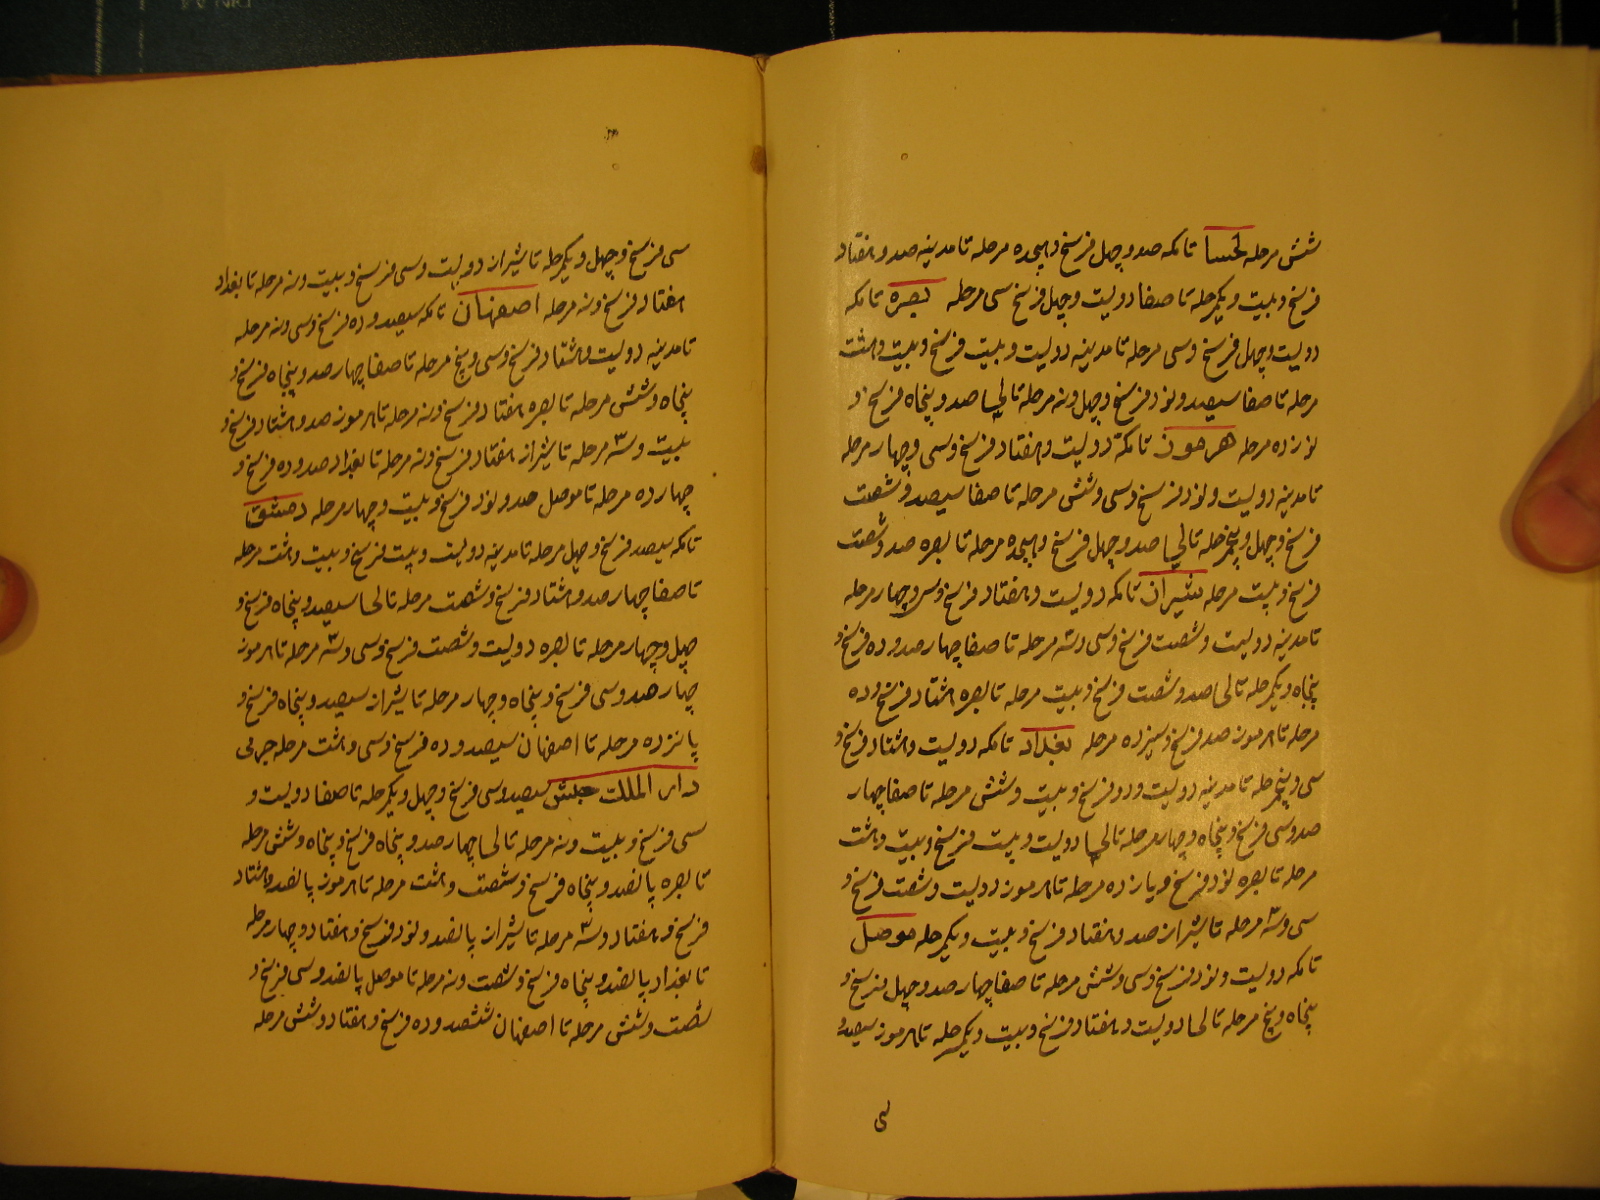 شش مرحله لحسا تا مکه صد و چهل فرسخ و هیجده مرحله تا مدینه صد و هفتاد
فرسخ و بیست و یکمرحله تا صفا دویست و چهل فرسخ سی مرحله بصره تا مکه
دویست و چهل فرسخ و سی مرحله تا مدینه دویست و بیست فرسخ و بیست و هشت
مرحله تا صفا سیصد و نود فرسخ و چهل و نه مرحله تا لحسا صد و پنجاه فرسخ و
نوزده مرحله هرموز تا مکه دویست و هفتاد فرسخ و سی و چهار مرحله
تا مدینه دویست و نود فرسخ و سی و شش مرحله تا صفا سیصد و شصت
فرسخ و چهل و پنجمرحله تا لحسا صد و چهل فرسخ و هیجده مرحله تا بصره صد و شصت
فرسخ و بیست مرحله شیراز تا مکه دویست و هفتاد فرسخ و سی و چهار مرحله
تا مدینه دویست و شصت فرسخ و سی و سه مرحله تا صفا چهار صد و ده فرسخ و
پنجاه و یکمرحله تا لحسا صد و شصت فرسخ و بیست مرحله تا بصره هشتاد فرسخ و ده
مرحله تا هرموز صد فرسخ و سیزده مرحله بغداد تا مکه دویست و هشتاد فرسخ و
سی و پنجمرحله تا مدینه دویست و دو فرسخ و بیست و شش مرحله تا صفا چهار
صد و سی فرسخ و پنجاه و چهار مرحله تا لحسا دویست و بیست فرسخ و بیست و هشت
مرحله تا بصره نود فرسخ و یازده مرحله تا هرموز دویست و شصت فرسخ و
سی و سه مرحله تا شیراز صد و هفتاد فرسخ و بیست و یکمرحله موصل
تا مکه دویست و نود فرسخ و سی و شش مرحله تا صفا چهار صد و چهل فرسخ و
پنجاه و پنج مرحله تا لحسا دویست و هفتاد فرسخ و بیست و یکمرحله تا هرموز سیصد و
سی
سی فرسخ و چهل و یکمرحله تا شیراز دویست و سی فرسخ و بیست و نه مرحله تا بغداد
هفتاد فرسخ و نه مرحله اصفهان تا مکه سیصد و ده فرسخ و سی و نه مرحله
تا مدینه دویست و هشتاد فرسخ و سی و پنج مرحله تا صفا چهار صد و پنجاه فرسخ و
پنجاه و شش مرحله تا بصره هفتاد فرسخ و نه مرحله تا هرموز صد و هشتاد فرسخ و
بیست و سه مرحله تا شیراز هفتاد فرسخ و نه مرحله تا بغداد صد و ده فرسخ و
چهارده مرحله تا موصل صد و نود فرسخ و بیست و چهار مرحله دمشق
تا مکه سیصد فرسخ و چهل مرحله تا مدینه دویست و بیست فرسخ و بیست و هشت مرحله
تا صفا چهار صد و هشتاد فرسخ و شصت مرحله تا لحسا سیصد و پنجاه فرسخ و
چهل و چهار مرحله تا بصره دویست و شصت فرسخ و سی و سه مرحله تا هرموز
چهار صد و سی فرسخ و پنجاه و چهار مرحله تا شیراز سیصد و پنجاه فرسخ و
پانزده مرحله تا اصفهان سیصد و ده فرسخ و سی و هشت مرحله جرمی
دار الملک حبش سیصد و سی فرسخ و چهل و یکمرحله تا صفا دویست و
سی فرسخ و بیست و نه مرحله تا لحسا چهار صد و پنجاه فرسخ و پنجاه و شش مرحله
تا بصره پانصد و پنجاه فرسخ و شصت و هشت مرحله تا هرموز پانصد و هشتاد
فرسخ و هفتاد و سه مرحله تا شیراز پانصد و نود فرسخ و هفتاد و چهار مرحله
تا بغداد پانصد و پنجاه فرسخ و شصت و نه مرحله تا موصل پانصد و سی فرسخ و
شصت و شش مرحله تا اصفهان ششصد و ده فرسخ و هفتاد و شش مرحله